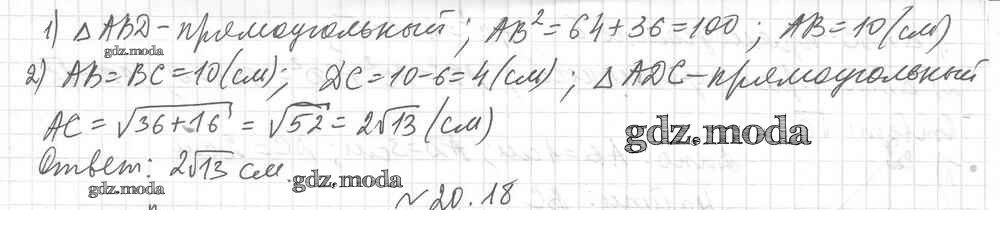 1) △ABD - прямоугольный; AB² = 64+36=100; AB=10(см)
gdz.moda
2) AB=BC=10(см); DC=10-6=4(см); △ADC - прямоугольный
AC = √36+16 = √52 = 2√13 (см)
gdz.moda
Ответ: 2√13 см.
gdz.moda
gdz.moda
№20.18